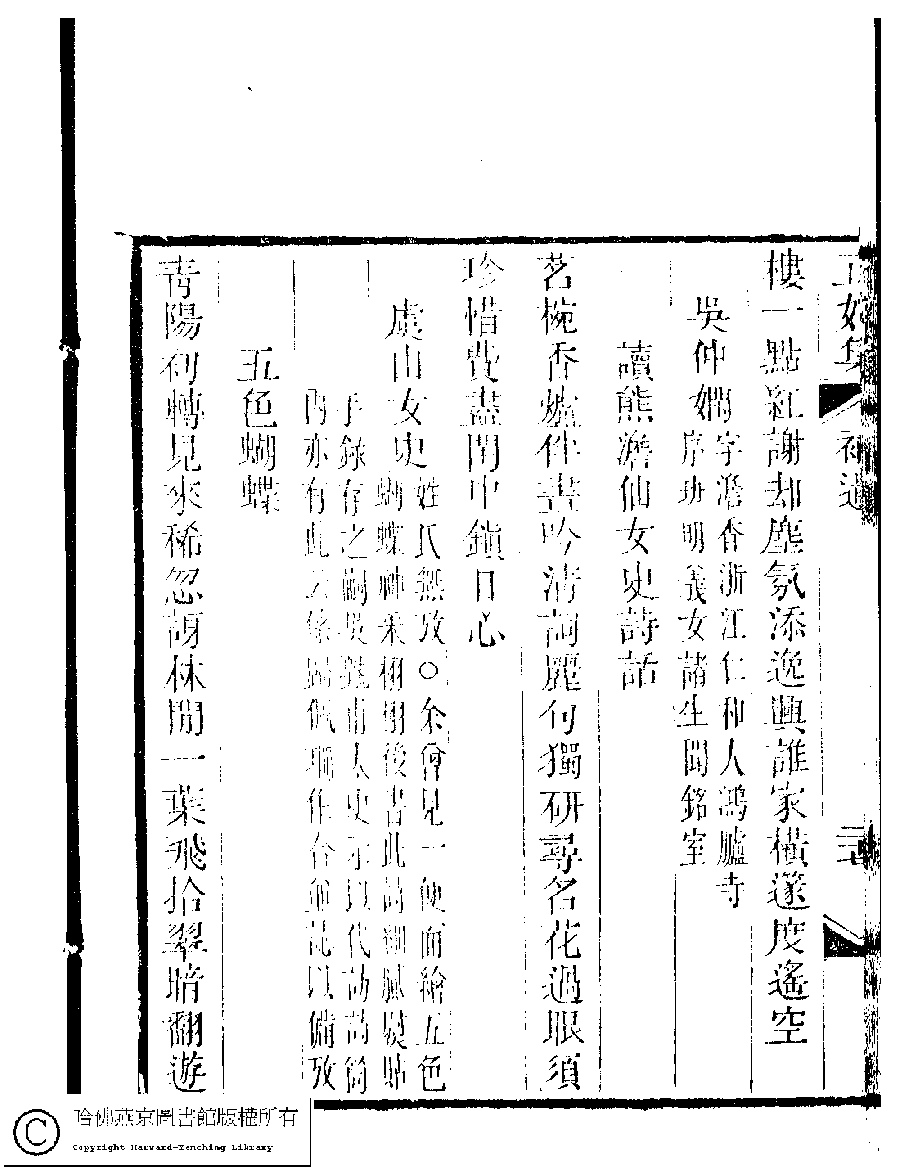 正始集 補遺
樓一點紅謝却塵氛添逸興誰家橫篴度遙空
吳仲嫺字澹香浙江仁和人鴻臚寺
序班明義女諸生聞銘室
讀熊澹仙女史詩話
茗椀香爐伴晝吟清詞麗句獨研尋名花過眼須
珍惜費盡閒中鎖日心
虞山女史姓氏無攷○余曾見一便面繪五色
蝴蝶神采栩栩後書此詩
手錄存之嗣
內亦有此 係歸佩珊作合並記以備攷
五色蝴蝶
青陽初轉見來稀忽訝林閒一葉飛拾翠暗翻遊
哈佛燕京圖書館版權所有
Copyright Harvard-Yenching Library